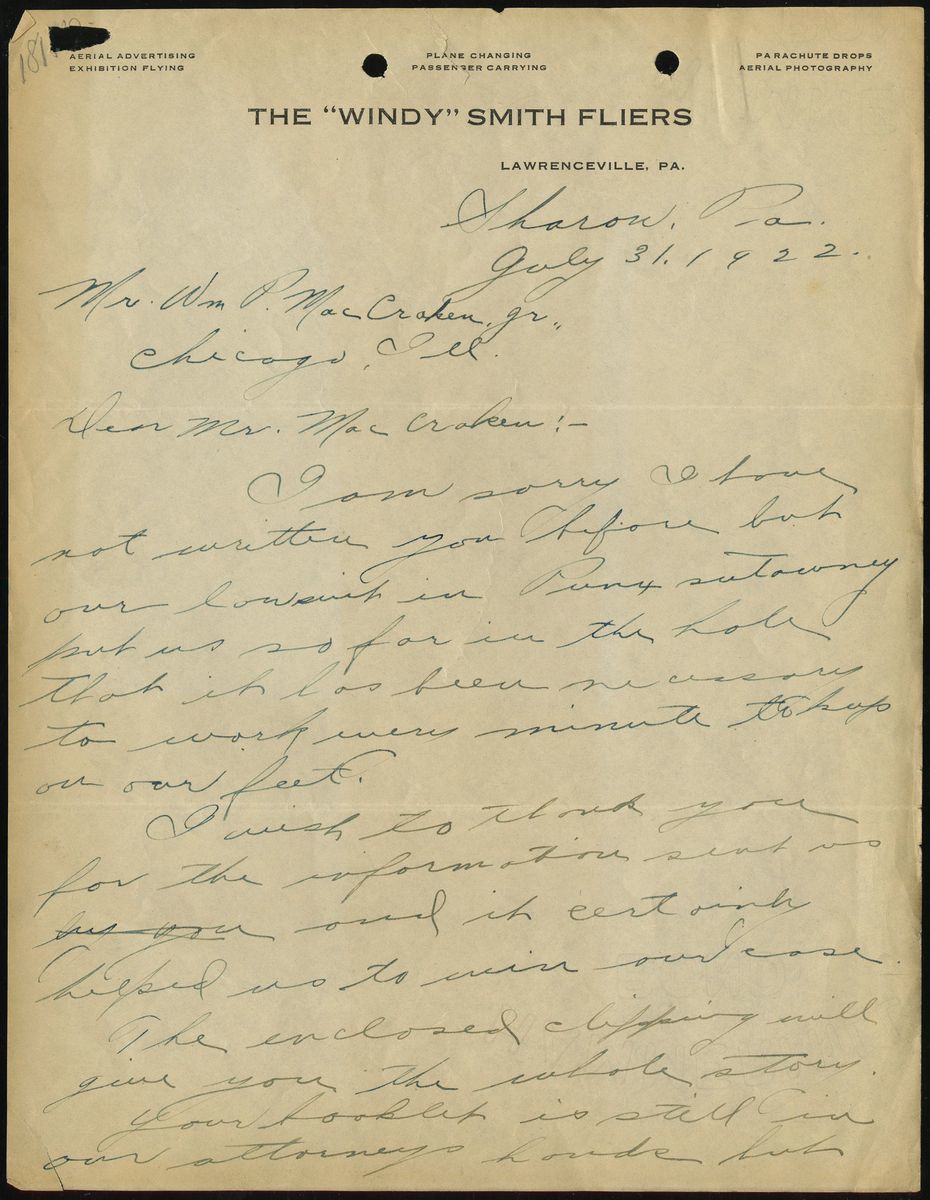 181
AERIAL ADVERTISING
EXHIBITION FLYING
PLANE CHANGING
PASSENGER CARRYING
PARACHUTE DROPS
AERIAL PHOTOGRAPHY
THE "WINDY" SMITH FLIERS
LAWRENCEVILLE, PA.
Sharon, Pa.
July 31, 1922.
Mr. Wm P. MacCraken, Jr.,
Chicago, Ill.
Dear Mr. MacCraken:-
I am sorry I have
not written you before but
our lawsuit in Punxsutawney
put us so far in the hole
that it has been necessary
to work every minute to keep
on our feet.
I wish to thank you
for the information sent us
by you and it certainly
helped us to win our case.
The enclosed clipping will
give you the whole story.
Your booklet is still in
our attorneys hands but